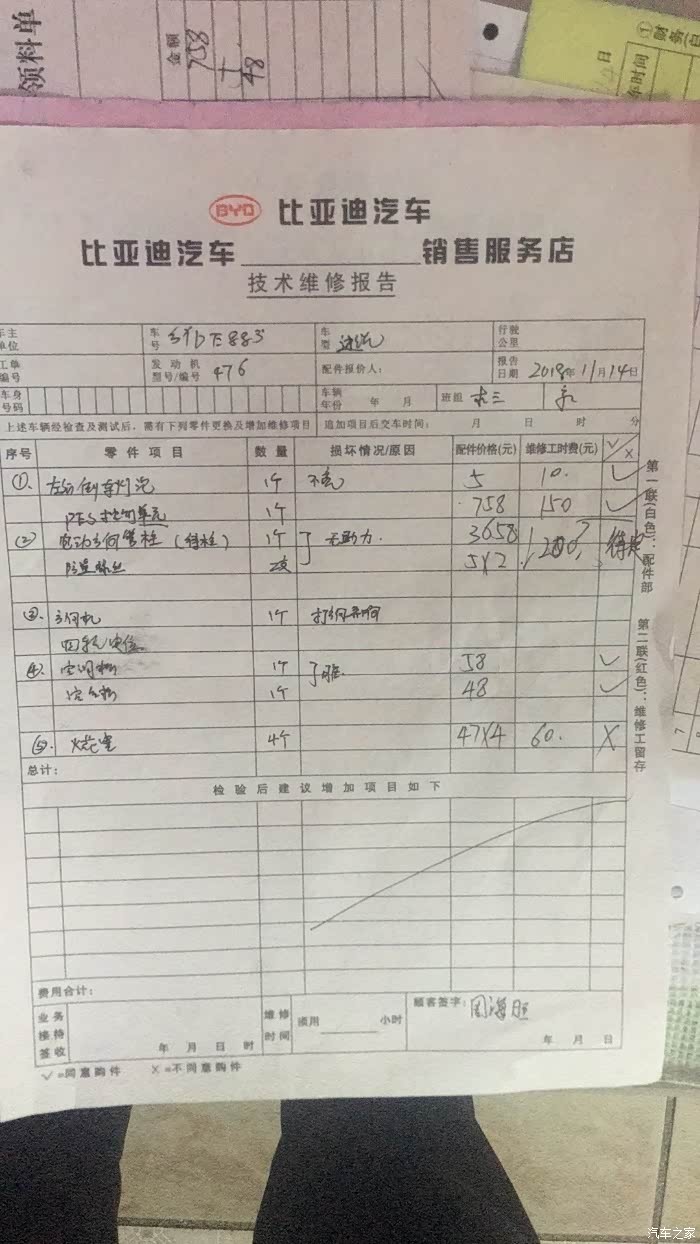 领料单
金额
758
48
①财务(白
日
车时间
BYD 比亚迪汽车
比亚迪汽车 销售服务店
技术维修报告
车主单位 车号 车型 行驶公里
工单编号 发动机型号/编号 476 配件报价人: 报告日期 2018年11月14日
车身号码 车辆年份 年 月 班组
上述车辆经检查及测试后,需有下列零件更换及增加维修项目 追加项目后交车时间: 月 日 时 分
序号 零件项目 数量 损坏情况/原因 配件价格(元) 维修工时费(元) √ X
①. 左后倒车灯泡 1个 不亮 5 10. √
控制单元 1个 758 150 √
② 电动方向管柱 1个 无助力. 3658 200? 待定
防盗螺丝 2支 5X2
③. 方向机 1个 打方向异响
四轮定位
④. 空调格 1个 脏. 58 √
空气格 1个 48 √
⑤. 火花塞 4个 47X4 60. X
总计:
检验后建议增加项目如下
费用合计:
业务接待签收 年 月 日 时 维修时间 须用 小时 顾客签字: 年 月 日
√=同意购件 X=不同意购件
第一联(白色):配件部
第二联(红色):维修工留存
汽车之家